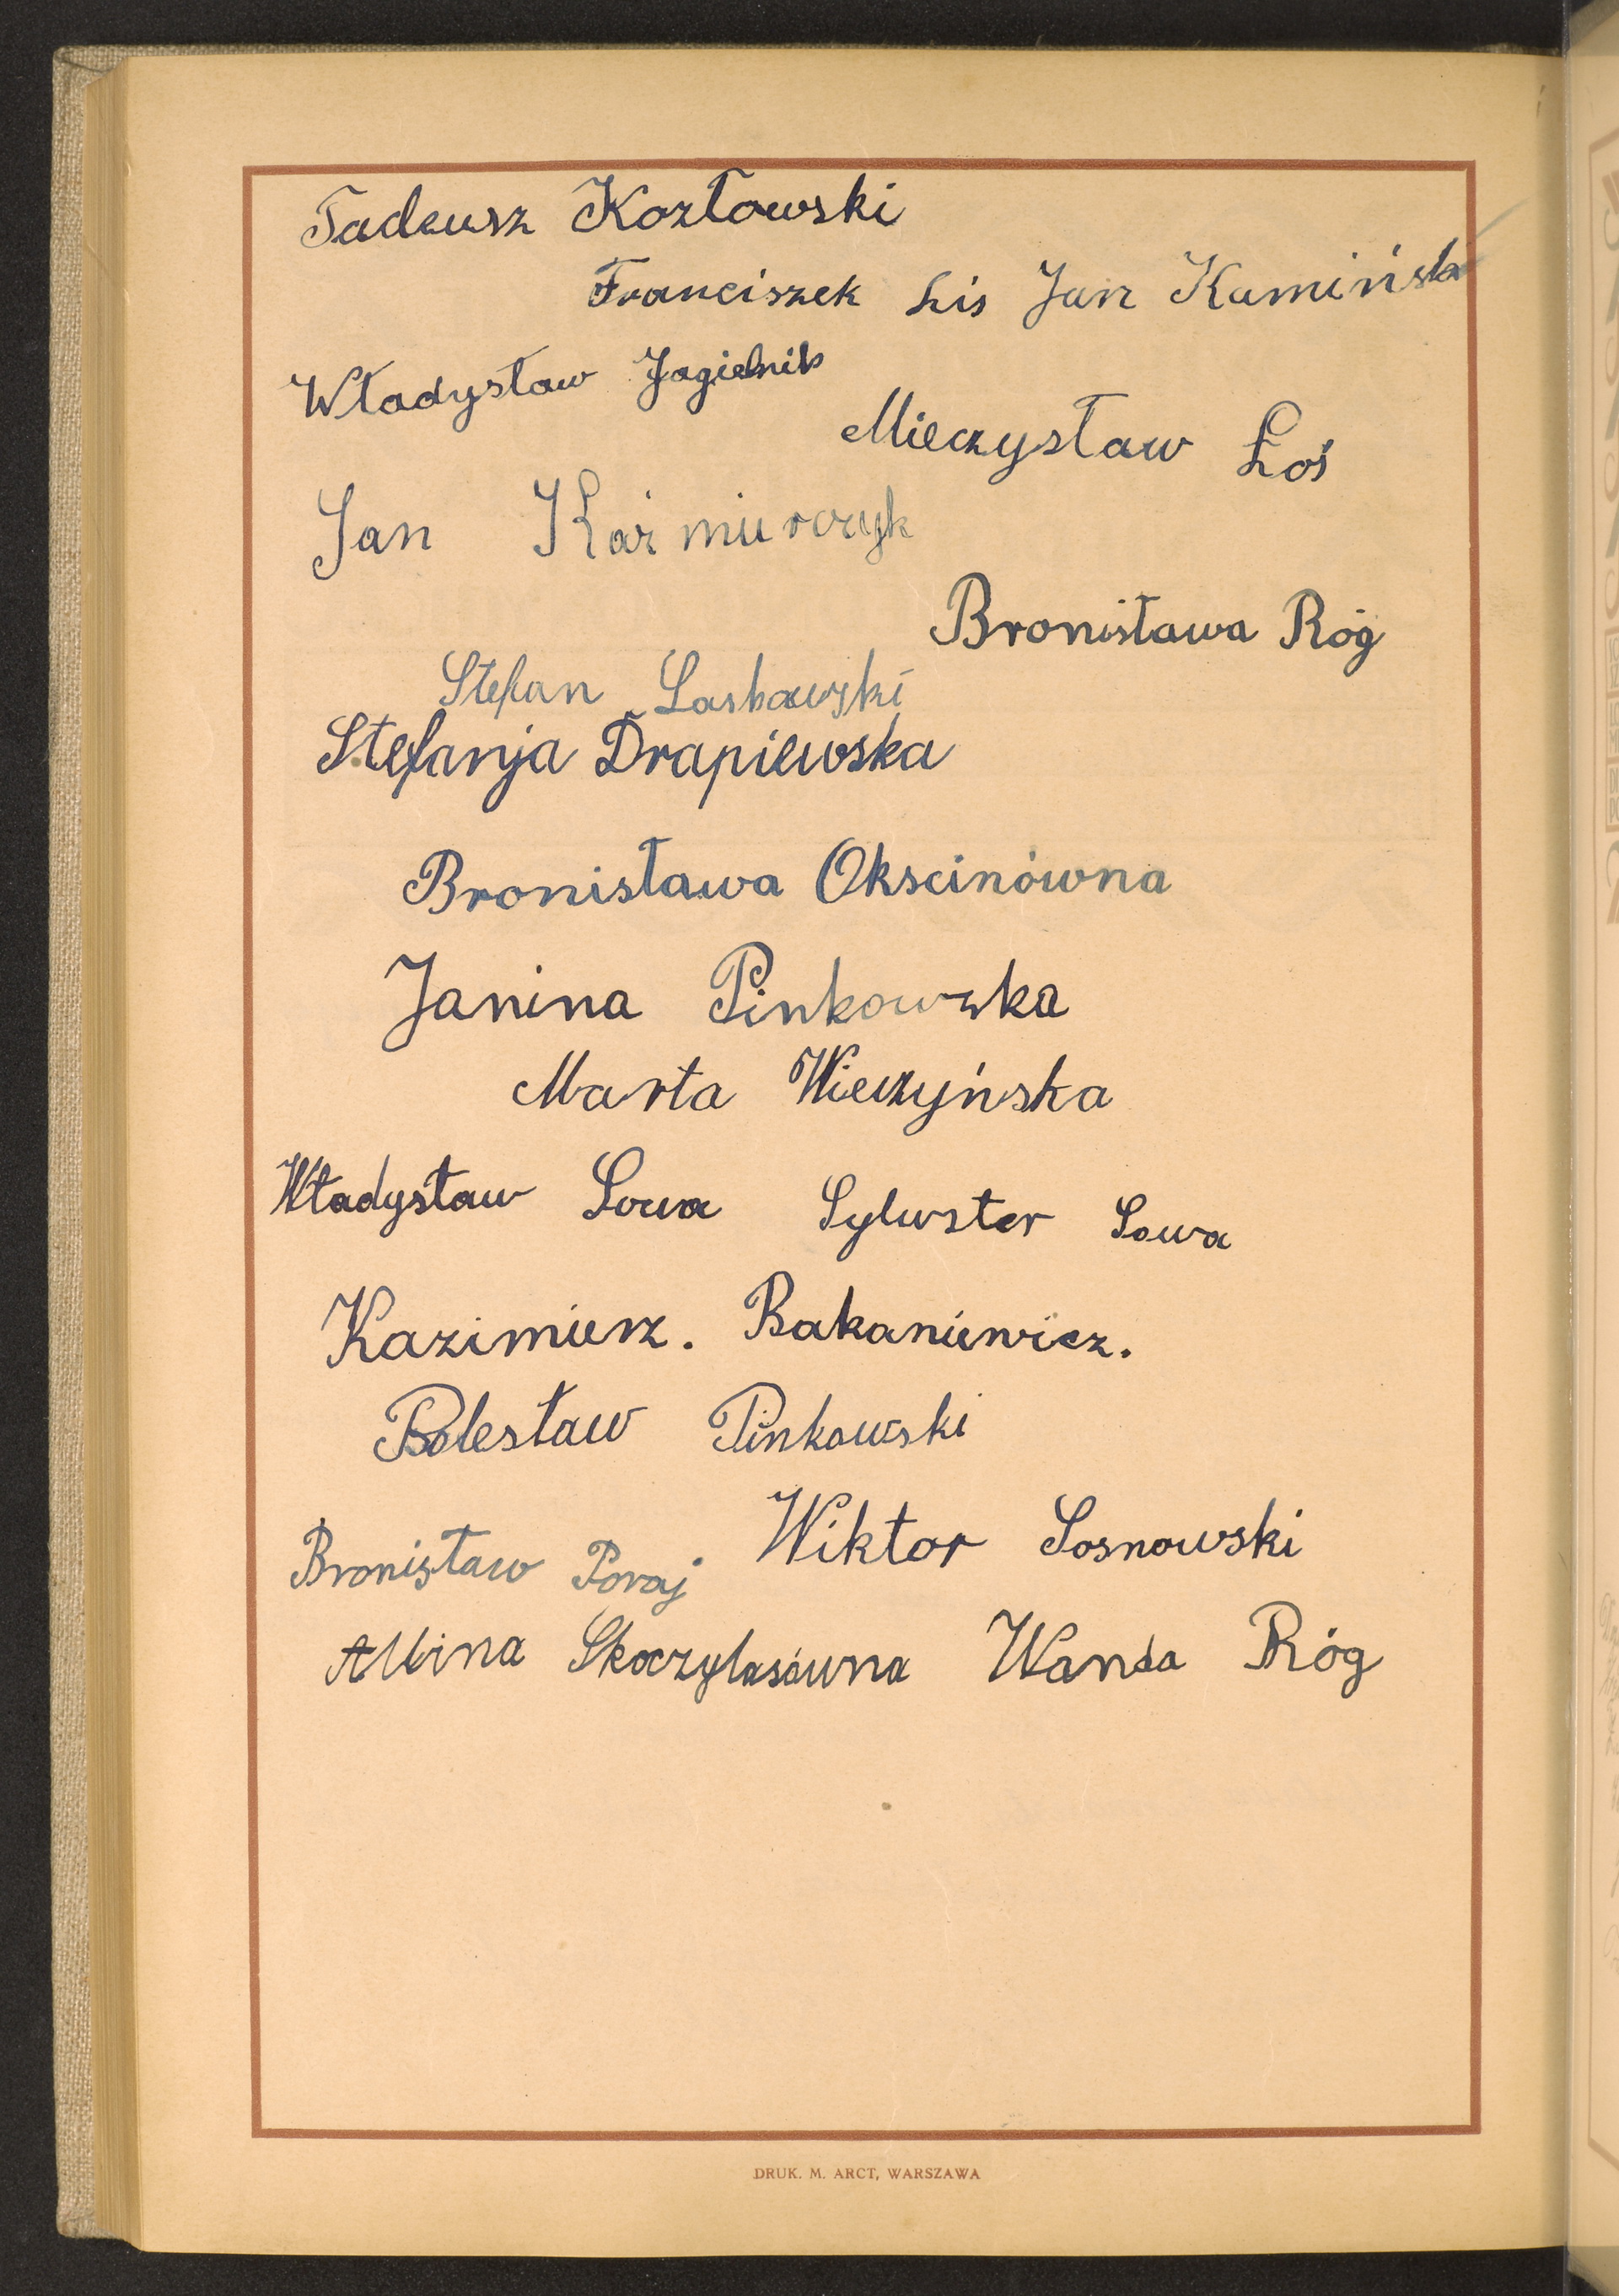 Tadeusz Kozłowski
Franciszek Lis Jan Kamiński
Władysław Jagielnik
Mieczysław Łoś
Jan Kaźmierczyk
Bronisława Róg
Stefan Laskowski
Stefanja Drapiewska
Bronisława Okscinówna
Janina Pinkowska
Marta Wieczyńska
Władysław Sowa Sylwster Sowa
Kazimierz. Bakaniewicz.
Bolesław Pinkowski
Wiktor Sosnowski
Bronisław Poraj
Albina Skoczylasówna Wanda Róg
DRUK. M. ARCT, WARSZAWA